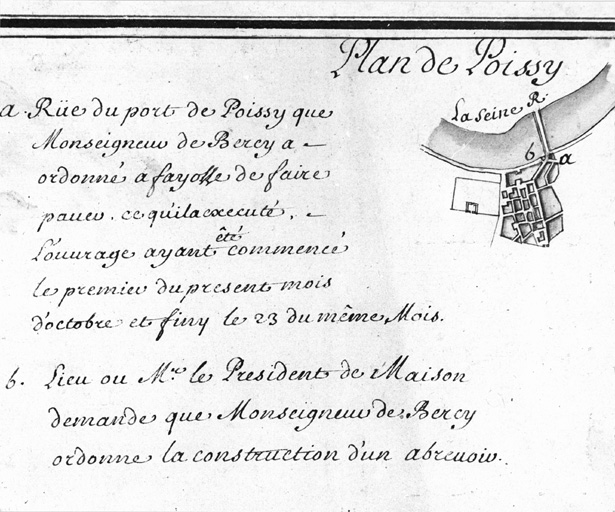 Plan de Poissy
La Seine R.
b a
a. Rüe du port de Poissy que
Monseigneur de Bercy a
ordonné a fayolle de faire
paver. ce qu'il a executé,
L'ouvrage ayant été commencé
le premier du present mois
d'octobre et finy le 23 du même Mois.
b. Lieu ou Mr. le President de Maison
demande que Monseigneur de Bercy
ordonne la construction d'un abrevoir.